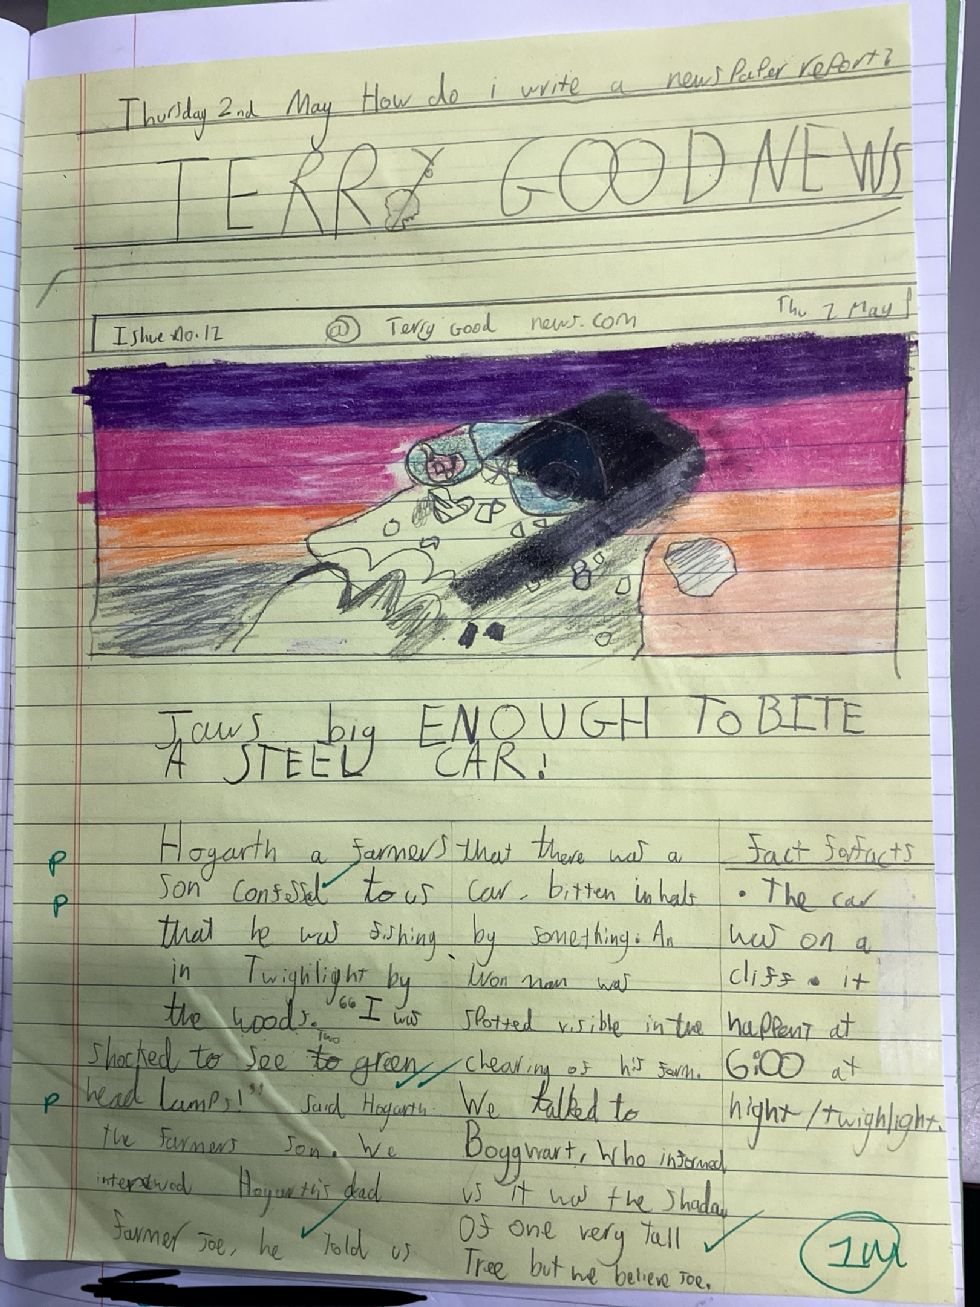 Thursday 2nd May How do i write a newspaper report?
TERRY GOOD NEWS
Ishue No.12 @ Terry Good news.com Thu 2 May
Jaws big ENOUGH TO BITE
A STEEL CAR!
P
P
P
Hogarth a farmers
son confessed to us
that he was fishing
in Twighlight by
the woods. "I was
shocked to see two green
head lamps!" said Hogarth
the farmers son. We
interviewd Hogarth's dad
farmer Joe, he told us
that there was a
car, bitten in half
by something. An
Iron man was
spotted visible in the
clearing of his farm.
We talked to
Boggwart, who informed
us it was the shadow
Of one very tall
Tree but we believe Joe.
fact
• The car
was on a
cliff • it
happent at
6:00 at
night/twighlight.